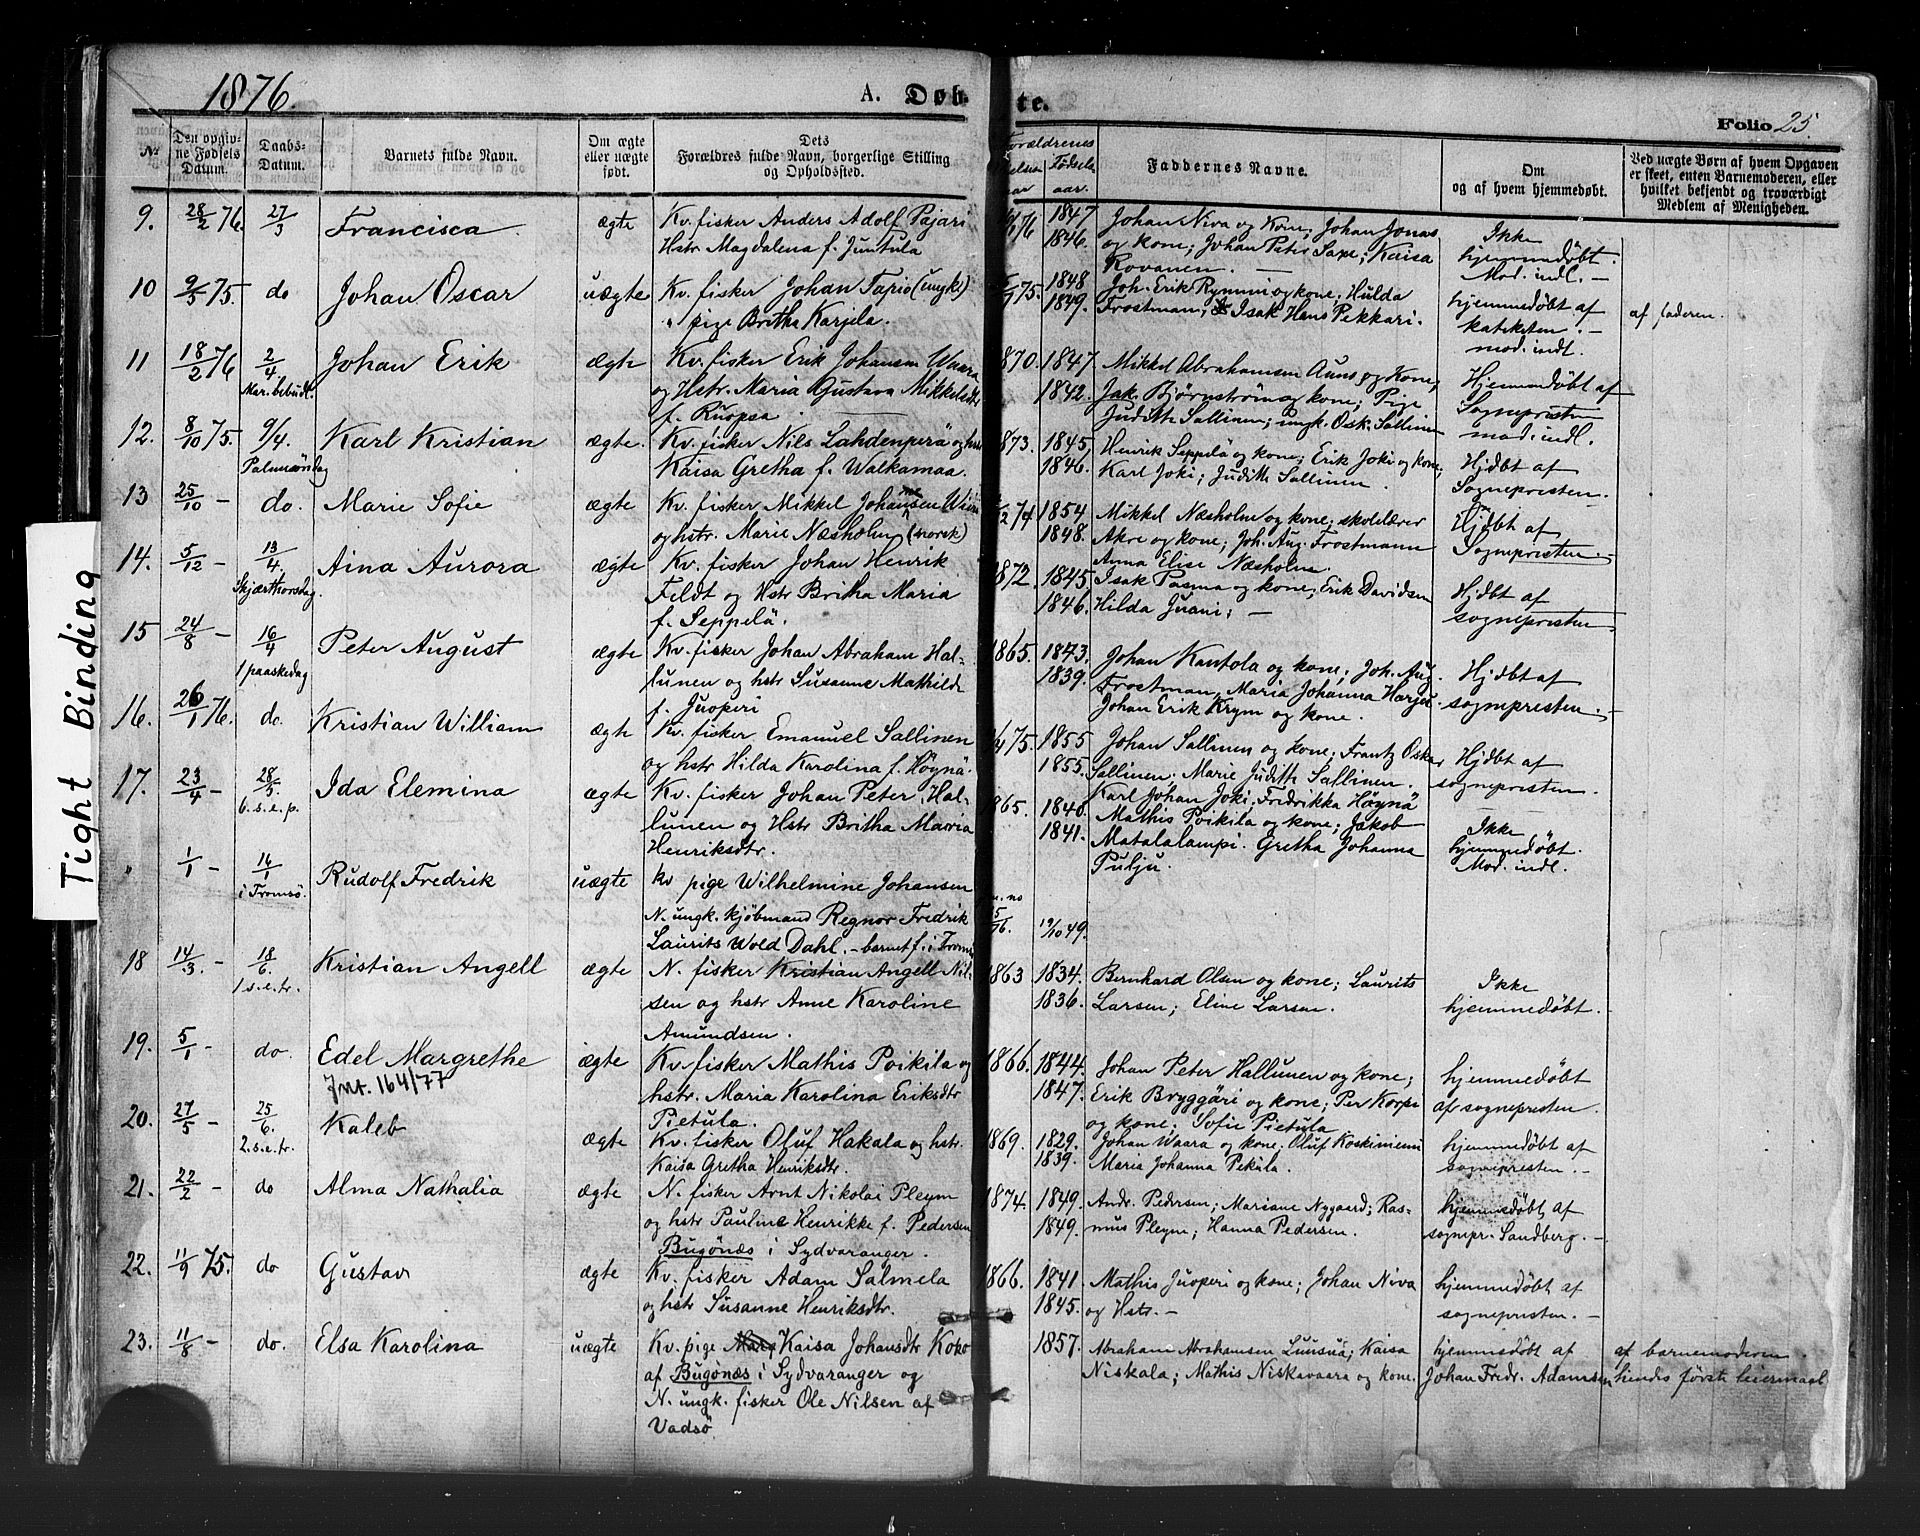 1876.
A. Døb
te.
Folio 25.
Tight Binding
№
Den opgivne Fødsels Datum.
Daabs-Datum.
Barnets fulde Navn.
Om ægte eller uægte født.
Dets Forældres fulde Navn, borgerlige Stilling og Opholdssted.
Forældrenes
Fødselsaar.
Faddernes Navne.
Om og af hvem hjemmedøbt.
Ved uægte Børn af hvem Opgaven er skeet, enten Barnemoderen, eller hvilket bekjendt og troværdigt Medlem af Menigheden.
9. 28/2 76. 27/3 Francisca ægte
Kv. fisker Anders Adolf Pajari
Hstr Magdalena f. Juntula
1847
1846.
Johan Niva og Kone; Johan Jonas
og kone; Johan Peter Saxe; Kaisa
Rovanen. —
Ikke
hjemmedøbt.
Mod. indl. —
10 9/5 75. do Johan Oscar uægte
Kv. fisker Johan Tapio (ungk)
" pige Britha Karjela.
75. 1848
1849.
Joh. Erik Rymmi og kone; Hulda
Frostman; Isak Hans Pekkari.
hjemmedøbt af
kateketen. —
mod. indt.
af faderen.
11 18/2 76 2/4 Mar. bebudl. Johan Erik ægte
Kv. fisker Erik Johansen Waara
og Hstr. Maria Gustava Mikkelsdtr
f. Ruopsa. —
1870 1847.
1842.
Mikkel Abrahamsen Auns og Kone;
Jak. Bjørnström og kone; Pige
Judith Sallinen; ungk. Osk. Sallinen
Hjemmedøbt af
Sognepresten
mod. indl.
12. 8/10 75. 9/4. Palmesøndag Karl Kristian ægte.
Kv. fisker Nils Lahdenperä og hstr
Kaisa Gretha f. Walkamaa.
1873. 1845.
1846.
Henrik Seppelä og kone; Erik Joki og kone,
Karl Joki; Judith Sallinen.
Hjdbt af
Sognepresten.
13 25/10 — do. Marie Sofie ægte
Kv. fisker Mikkel Johansen
og hstr. Marie Næsholm (norsk)
74. 1854
1848.
Mikkel Næsholm og kone; skolelærer
Akre og kone; Joh. Aug. Frostmann
Anna Elise Næsholm.
Hjdbt af
Sognepresten. —
14. 5/12 — 13/4. Skjærthorsdag. Aina Aurora ægte
Kv. fisker Johan Henrik
Feldt og Hstr Britha Maria
f. Seppelä.
1872. 1845.
1846.
Isak Pasma og kone; Erik Davidsen
Hilda Juani; —
Hjdbt af
sognepresten.
15 24/8 — 16/4 1 paaskedag Peter August ægte
Kv. fisker Johan Abraham Hal-
lunen og hstr Susanne Mathilde
f. Juoperi
1865. 1843.
1839.
Johan Kantola og kone; Joh. Aug.
Frostman, Maria Johanna Harju.
Johan Erik Krym og kone.
Hjdbt af
sognepresten. —
16. 26/1 76. do. Kristian William ægte
Kv. fisker Emanuel Sallinen
og hstr Hilda Karolina f. Höynä.
75. 1855
1855.
Johan Sallinen og kone; Frantz Oskar
Sallinen; Marie Judith Sallinen.
Karl Johan Joki, Fredrikka Höynä
Hjdbt af
sognepresten.
17. 23/4 — 28/5. 6. s. e. p. Ida Elemina ægte
Kv. fisker Johan Peter Hal-
lunen og Hstr Britha Maria
Henriksdtr.
1865. 1840.
1841.
Mathis Poikila og kone; Jakob
Matalalampi. Gretha Johanna
Pulju.
Ikke
hjemmedøbt.
Mod. indl.
" 1/1 — 14/1 i Tromsø. Rudolf Fredrik uægte
kv pige Wilhelmine Johansen
N. ungk. kjöbmand Regnor Fredrik
Laurits Wold Dahl. — barnet f. i Tromsø
19/10 49.
18 14/3. — 18/6. 1. s. e. tr. Kristian Angell ægte
N. fisker Kristian Angell Nil-
sen og hstr Anne Karoline
Amundsen.
1863 1834.
1836.
Bernhard Olsen og kone; Laurits
Larsen; Eline Larsen.
Ikke
hjemmedøbt. —
19. 5/1 — do. Edel Margrethe ægte
Jnt. 164/77
Kv. fisker Mathis Poikila og
hstr. Maria Karolina Eriksdtr
Pietula.
1866. 1844.
1847.
Johan Peter Hallunen og kone;
Erik Bryggäri og kone; Per Korpi
og kone; Sofie Pietula
hjemmedøbt
af sognepresten.
20. 27/5 — 25/6. 2. s. e. tr. Kaleb ægte
Kv. fisker Oluf Hakala og hstr.
Kaisa Gretha Henriksdtr.
1869. 1829.
1839.
Johan Waara og kone; Oluf Koskiniemi
Maria Johanna Pekula.
hjemmedøbt af
sognepresten. —
21. 22/2 — do Alma Nathalia ægte
N. fisker Arnt Nikolai Pleym
og hstr Pauline Henrikke f. Pedersen
Bugönæs i Sydvaranger.
1874. 1849.
1849.
Andr. Pedersen; Mariane Nygaard; Ras-
mus Pleym; Hanna Pedersen.
hjemmedøbt af
sognepr. Sandberg. —
22. 11/9 75. do Gustav ægte
Kv. fisker Adam Salmela
og hstr Susanne Henriksdtr.
1866. 1841.
1845.
Mathis Juoperi og kone; Johan Niva
og Hstr. —
hjemmedøbt af
sognepresten. —
23. 11/8 — do. Elsa Karolina uægte
Kv. pige Kaisa Johansdtr Koko
af Bugönæs i Sydvaranger og
N. ungk. fisker Ole Nilsen af
Vadsö
1857.
Abraham Abrahamsen Luusua; Kaisa
Niskala; Mathis Niskavaara og kone.
hjemmedøbt af
Johan Fredr. Adamsen
af barnemoderen.
hendes förste leiermaal